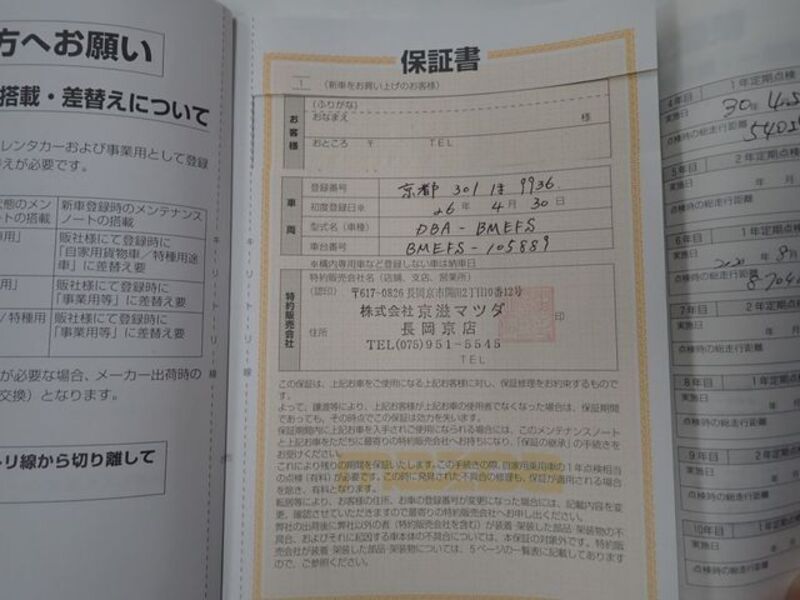 方へお願い
搭載・差替えについて
レンタカーおよび事業用として登録
替えが必要です。
状態のメン
ートの搭載
新車登録時のメンテナンス
ノートの搭載
販社様にて登録時に
「自家用貨物車／特種用途
車」に差替え要
販社様にて登録時に
「事業用等」に差替え要
／特種用
販社様にて登録時に
「事業用等」に差替え要
が必要な場合、メーカー出荷時の
交換）となります。
トリ線から切り離して
キリトリ線
保証書
1
(新車をお買い上げのお客様)
お客様
(ふりがな)
おなまえ
様
おところ 〒 TEL
車両
登録番号 京都 301 ほ 9936
初度登録日※ 26年 4月 30日
型式名(車種) DBA-BMEFS
車台番号 BMEFS-105889
※構内専用車など登録しない車は納車日
特約販売会社
特約販売会社名(店舗、支店、営業所)
(認印) 〒617-0826 長岡京市開田2丁目10番12号
株式会社 京滋マツダ
長岡京店
印
住所
TEL(075)951-5545
TEL
この保証は、上記お車をご使用になる上記お客様に対し、保証修理をお約束するもので
す。
よって、譲渡等により、上記お客様が上記お車の使用者でなくなった場合は、保証期間
であっても、その時点でこの保証は効力を失います。
保証期間内に上記お車を入手されご使用になられる場合には、このメンテナンスノート
と上記お車をただちに最寄りの特約販売会社へお持ちになり、「保証の継承」の手続きを
お受けください。
これにより残りの期間を保証いたします。この手続きの際、自家用乗用車の1年点検相当
の点検(有料)が必要です。この時に発見された不具合の修理も、保証が適用される場合
を除き、有料となります。
転居等により、お客様の住所、お車の登録番号が変更になった場合には、記載内容を変
更、確認させていただきますので最寄りの特約販売会社へお申し出ください。
弊社の出荷後に弊社以外の者(特約販売会社を含む)が装着・架装した部品・架装物の不
具合、およびそれに起因する車本体の不具合については、本保証の対象外です。特約販
売会社が装着・架装した部品・架装物については、5ページの一覧表に記載してあります
ので、ご参照ください。
4年目 1年定期点検
実施日 30年
点検時の総走行距離
5年目 2年定期点検
実施日 年 月
点検時の総走行距離
6年目 1年定期点検
実施日 年 8月
点検時の総走行距離
7年目 2年
実施日 年 月
点検時の総走行距離
8年目 1年定期点検
実施日 年 月
点検時の総走行距離
9年目 2年定期
実施日 年
点検時の総走行距離
10年目 1年定期点
実施日 年 月
点検時の総走行距離